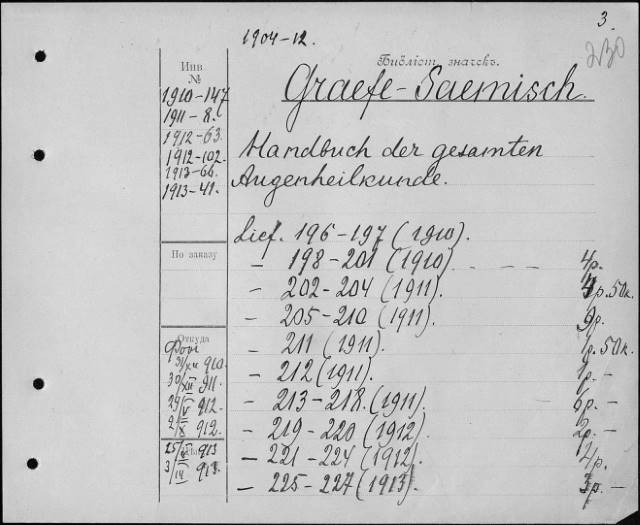 3.
1904-12.
230
Библіот. значекъ.
Graefe-Saemisch.
Инв.
№
1910-147
1911-8.
1912-63.
1912-102.
1913-66.
1913-41.
Handbuch der gesamten
Augenheilkunde.
Lief. 196-197 (1910).
По заказу
— 198-201 (1910) - - - 4р.
— 202-204 (1911). 4р.50к.
— 205-210 (1911). 9р.
Откуда
— 211 (1911). 1р.50к.
31/XII 910.
— 212 (1911). 1р. -
30/XII 911.
— 213-218. (1911). 6р. -
29/V 912.
— 219-220 (1912). 2р. -
2/X 912.
— 221-224 (1912). 4р.
913
— 225-227 (1913). 3р. -
3/IV 913.